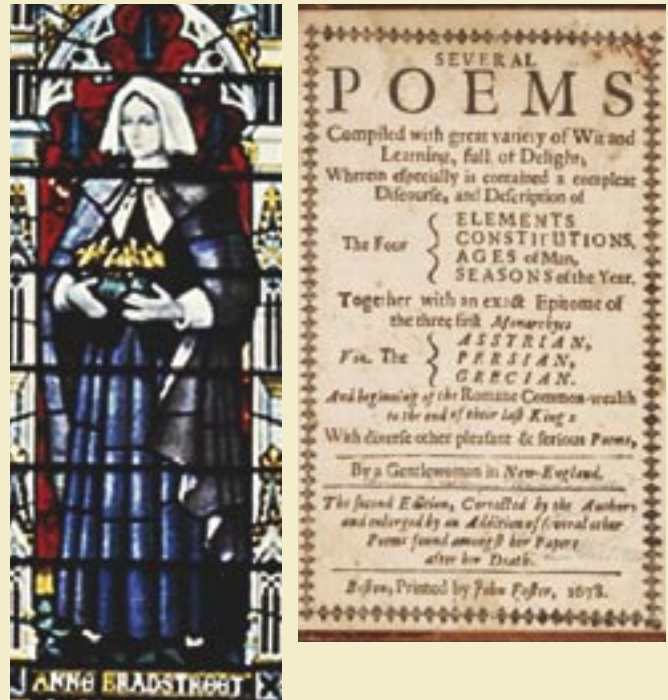 ANNE BRADSTREET
SEVERAL
POEMS
Compiled with great variety of Wit and
Learning, full of Delight,
Wherein especially is contained a compleat
Discourse, and Description of
The Four
ELEMENTS
CONSTITUTIONS,
AGES of Man,
SEASONS of the Year.
Together with an exact Epitome of
the three first Monarchyes
Viz. The
ASSYRIAN,
PERSIAN,
GRECIAN.
And beginning of the Romane Common-wealth
to the end of their last King:
With diverse other pleasant & serious Poems,
By a Gentlewoman in New-England.
The second Edition, Corrected by the Author,
and enlarged by an Addition of several other
Poems found amongst her Papers
after her Death.
Boston, Printed by John Foster, 1678.